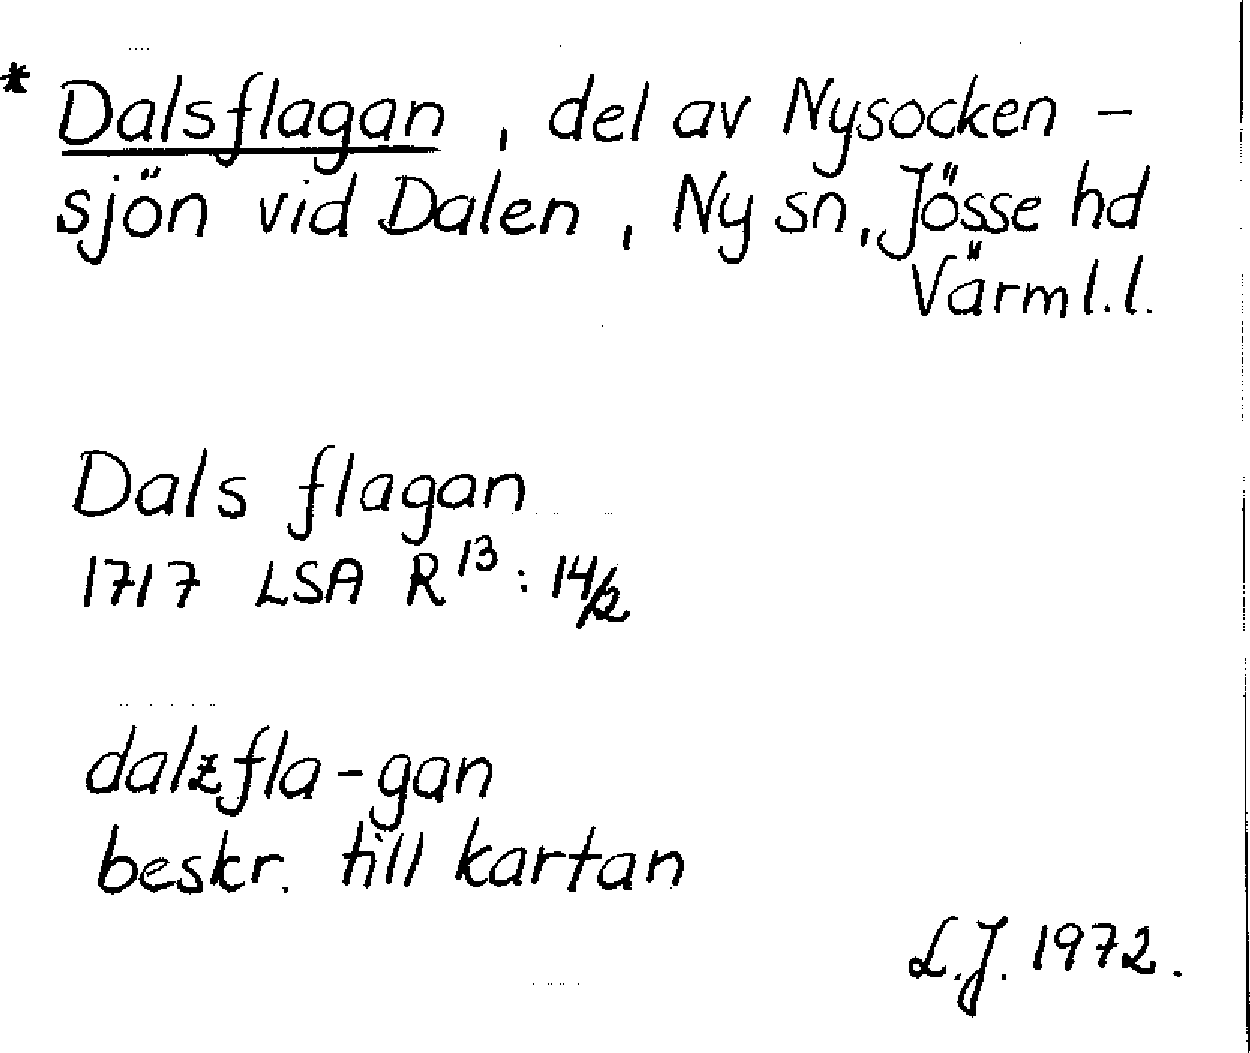 * Dalsflagan, del av Nysocken-
sjön vid Dalen, Ny sn, Jösse hd
Värml.l.
Dals flagan
1717 LSA R 13 : 14/2
dalzfla-gan
beskr. till kartan
L.J. 1972.